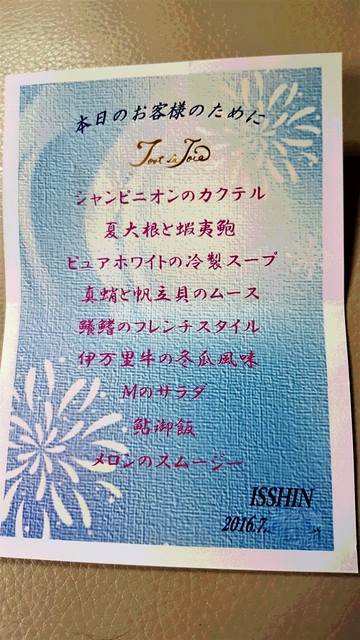 本日のお客様のために
シャンピニオンのカクテル
夏大根と蝦夷鮑
ピュアホワイトの冷製スープ
真蛸と帆立貝のムース
鱶鰭のフレンチスタイル
伊万里牛の冬瓜風味
Mのサラダ
鮎御飯
メロンのスムージー
ISSHIN
2016.7.